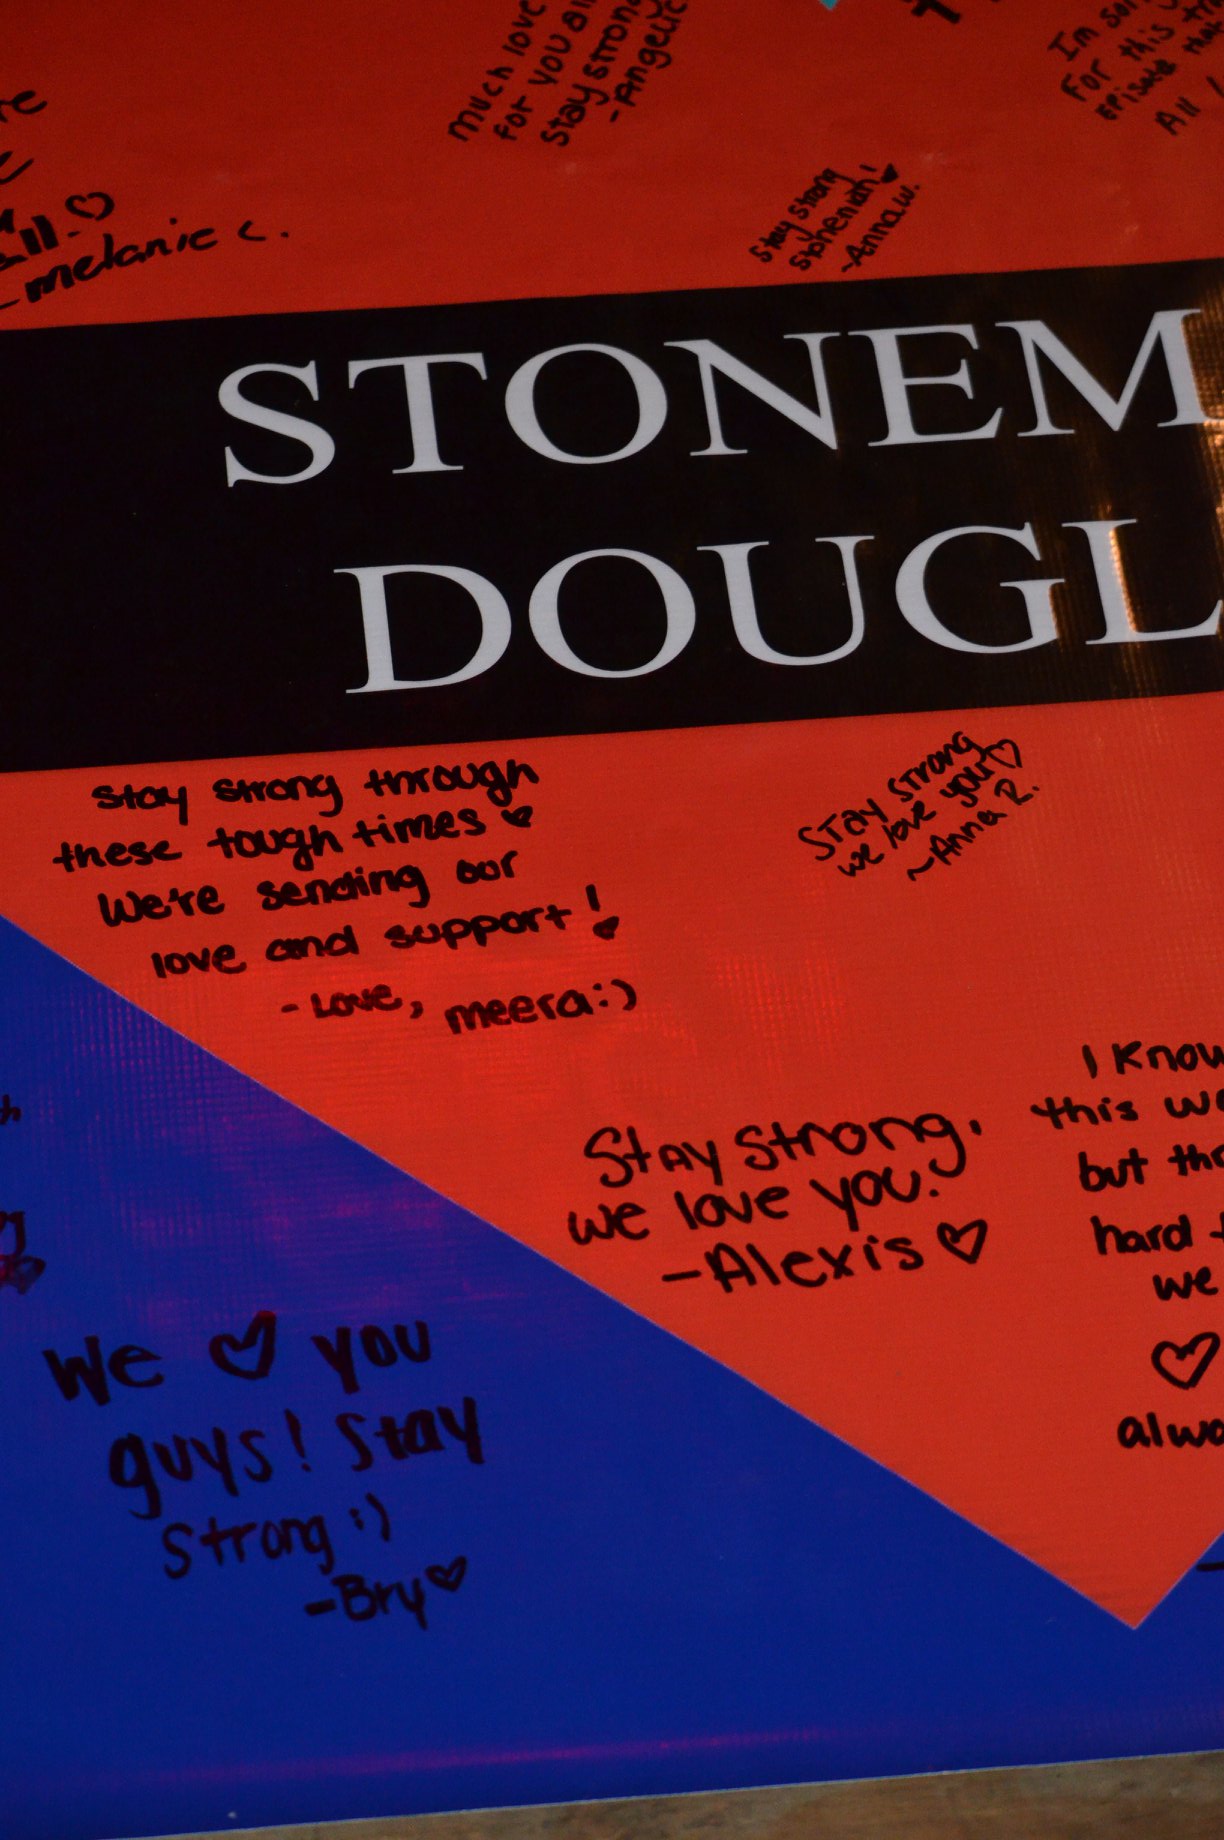 much love
for you all
stay strong
-Angelic
Im
For this
Episode that
All
all.♡
-melanie c.
Stay strong
stoneman!
-Anna W.
STONEM
DOUGL
Stay strong through
these tough times ♥
We're sending our
love and support!
- Love, meera:)
Stay strong
we love you♡
~Anna R.
Stay Strong,
we love you.
-Alexis ♡
I Know
this we
but thr
hard
we
♡
alwa
We ♡ you
guys! Stay
Strong :)
-Bry♡